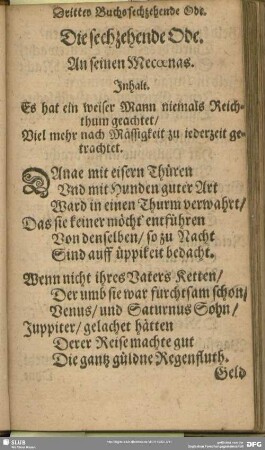 Dritten Buchs sechzehende Ode.
Die sechzehende Ode.
An seinen Mecœnas.
Inhalt.
Es hat ein weiser Mann niemals Reich-
thum geachtet/
Viel mehr nach Mässigkeit zu iederzeit ge-
trachtet.
DAnae mit eisern Thüren
Vnd mit Hunden guter Art
Ward in einen Thurm verwahrt/
Das sie keiner möcht entführen
Von denselben/ so zu Nacht
Sind auff üppikeit bedacht.
Wenn nicht ihres Vaters Ketten/
Der umb sie war furchtsam schon/
Venus/ und Saturnus Sohn/
Juppiter/ gelachet hätten
Derer Reise machte gut
Die gantz güldne Regenfluth.
Geld
SLUB
DFG